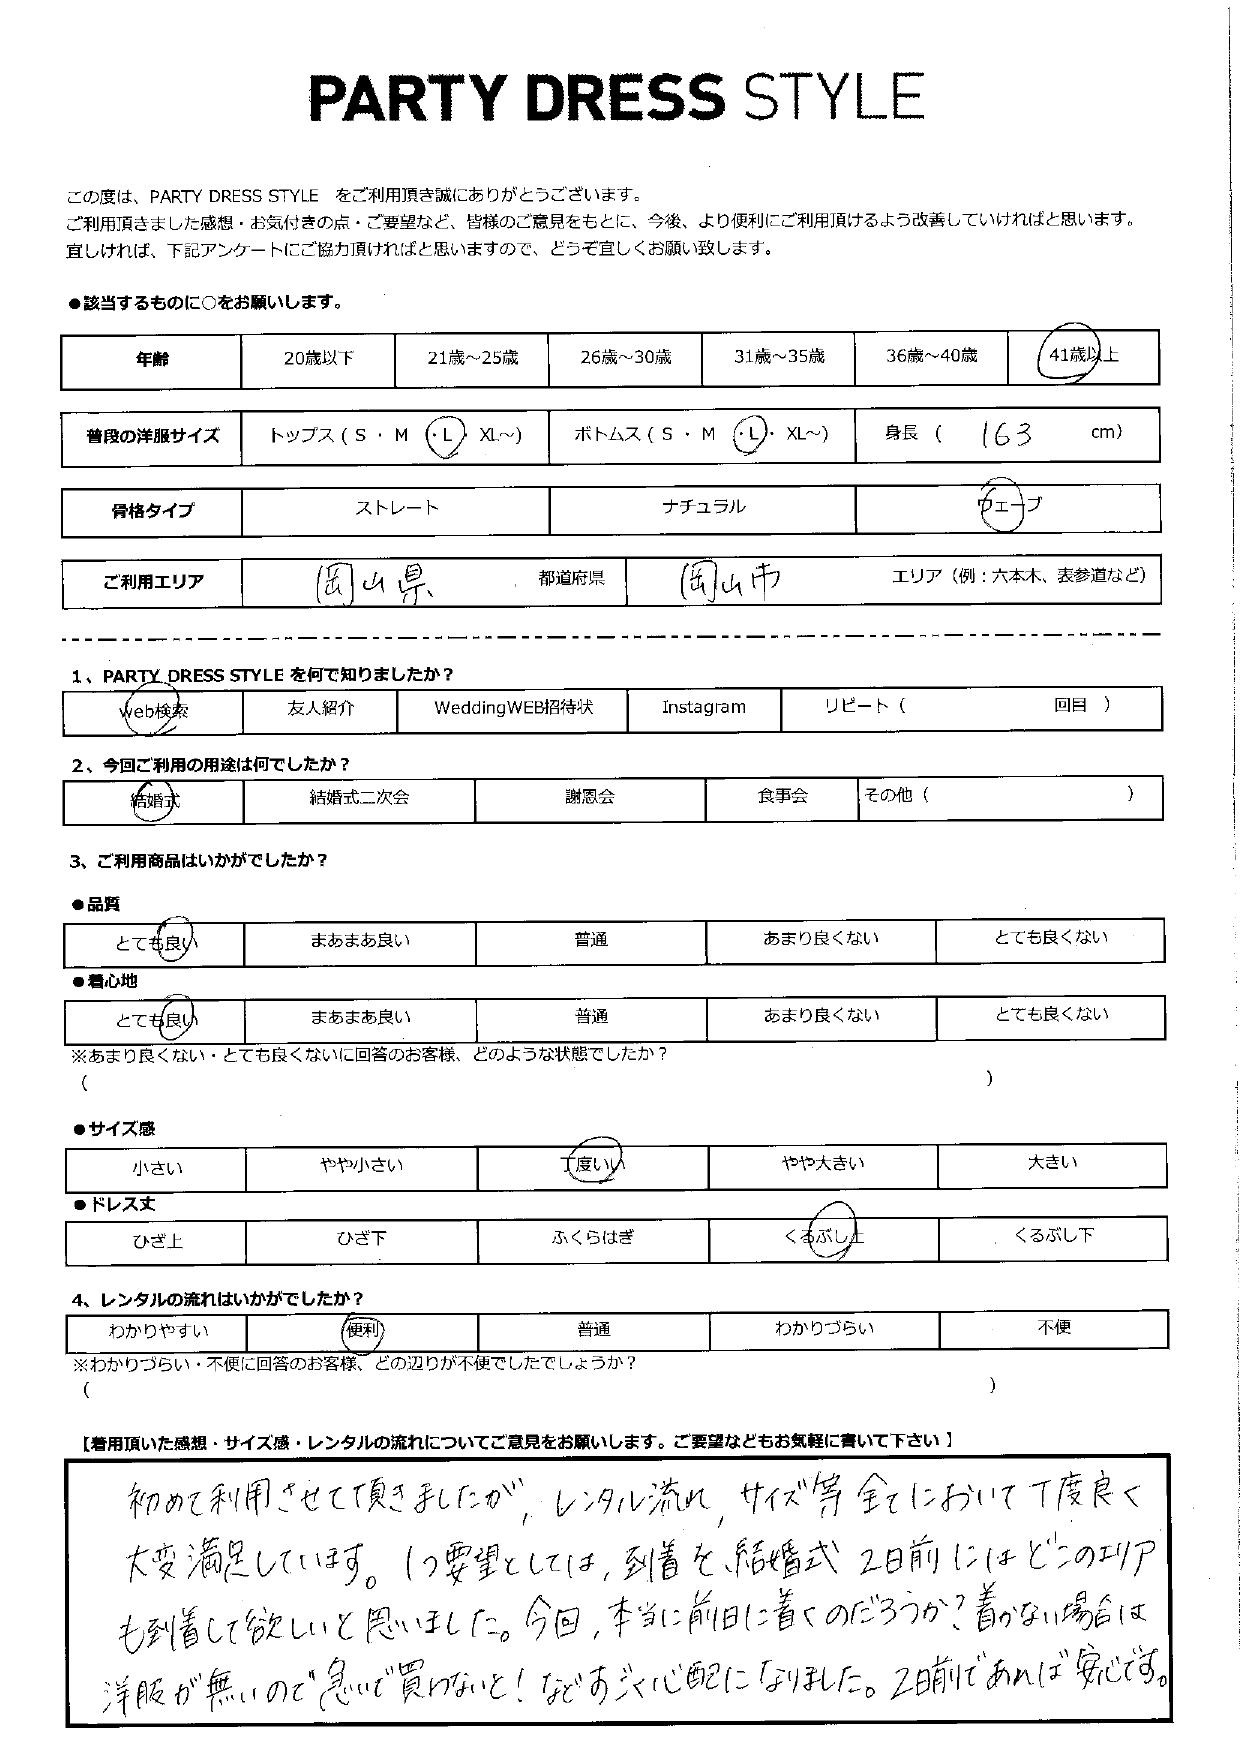 PARTY DRESS STYLE
この度は、PARTY DRESS STYLE をご利用頂き誠にありがとうございます。
ご利用頂きました感想・お気付きの点・ご要望など、皆様のご意見をもとに、今後、より便利にご利用頂けるよう改善していければと思います。
宜しければ、下記アンケートにご協力頂ければと思いますので、どうぞ宜しくお願い致します。
●該当するものに○をお願いします。
年齢 20歳以下 21歳～25歳 26歳～30歳 31歳～35歳 36歳～40歳 41歳以上
普段の洋服サイズ トップス ( S ・ M ・L・ XL～) ボトムス ( S ・ M ・L・ XL～) 身長 ( 163 cm)
骨格タイプ ストレート ナチュラル ウェーブ
ご利用エリア 岡山県 都道府県 岡山市 エリア（例：六本木、表参道など）
1、PARTY DRESS STYLE を何で知りましたか？
Web検索 友人紹介 WeddingWEB招待状 Instagram リピート（ 回目 ）
2、今回ご利用の用途は何でしたか？
結婚式 結婚式二次会 謝恩会 食事会 その他（ ）
3、ご利用商品はいかがでしたか？
●品質
とても良い まあまあ良い 普通 あまり良くない とても良くない
●着心地
とても良い まあまあ良い 普通 あまり良くない とても良くない
※あまり良くない・とても良くないに回答のお客様、どのような状態でしたか？
（ ）
●サイズ感
小さい やや小さい 丁度いい やや大きい 大きい
●ドレス丈
ひざ上 ひざ下 ふくらはぎ くるぶし上 くるぶし下
4、レンタルの流れはいかがでしたか？
わかりやすい 便利 普通 わかりづらい 不便
※わかりづらい・不便に回答のお客様、どの辺りが不便でしたでしょうか？
（ ）
【着用頂いた感想・サイズ感・レンタルの流れについてご意見をお願いします。ご要望などもお気軽に書いて下さい】
初めて利用させて頂きましたが, レンタル流れ, サイズ等 全てにおいて丁度良く
大変満足しています。1つ要望としては, 到着を、結婚式 2日前にはどこのエリア
も到着して欲しいと思いました。今回, 本当に前日に着くのだろうか?着かない場合は
洋服が無いので急いで買わないと! などすごく心配になりました。2日前であれば安心です。